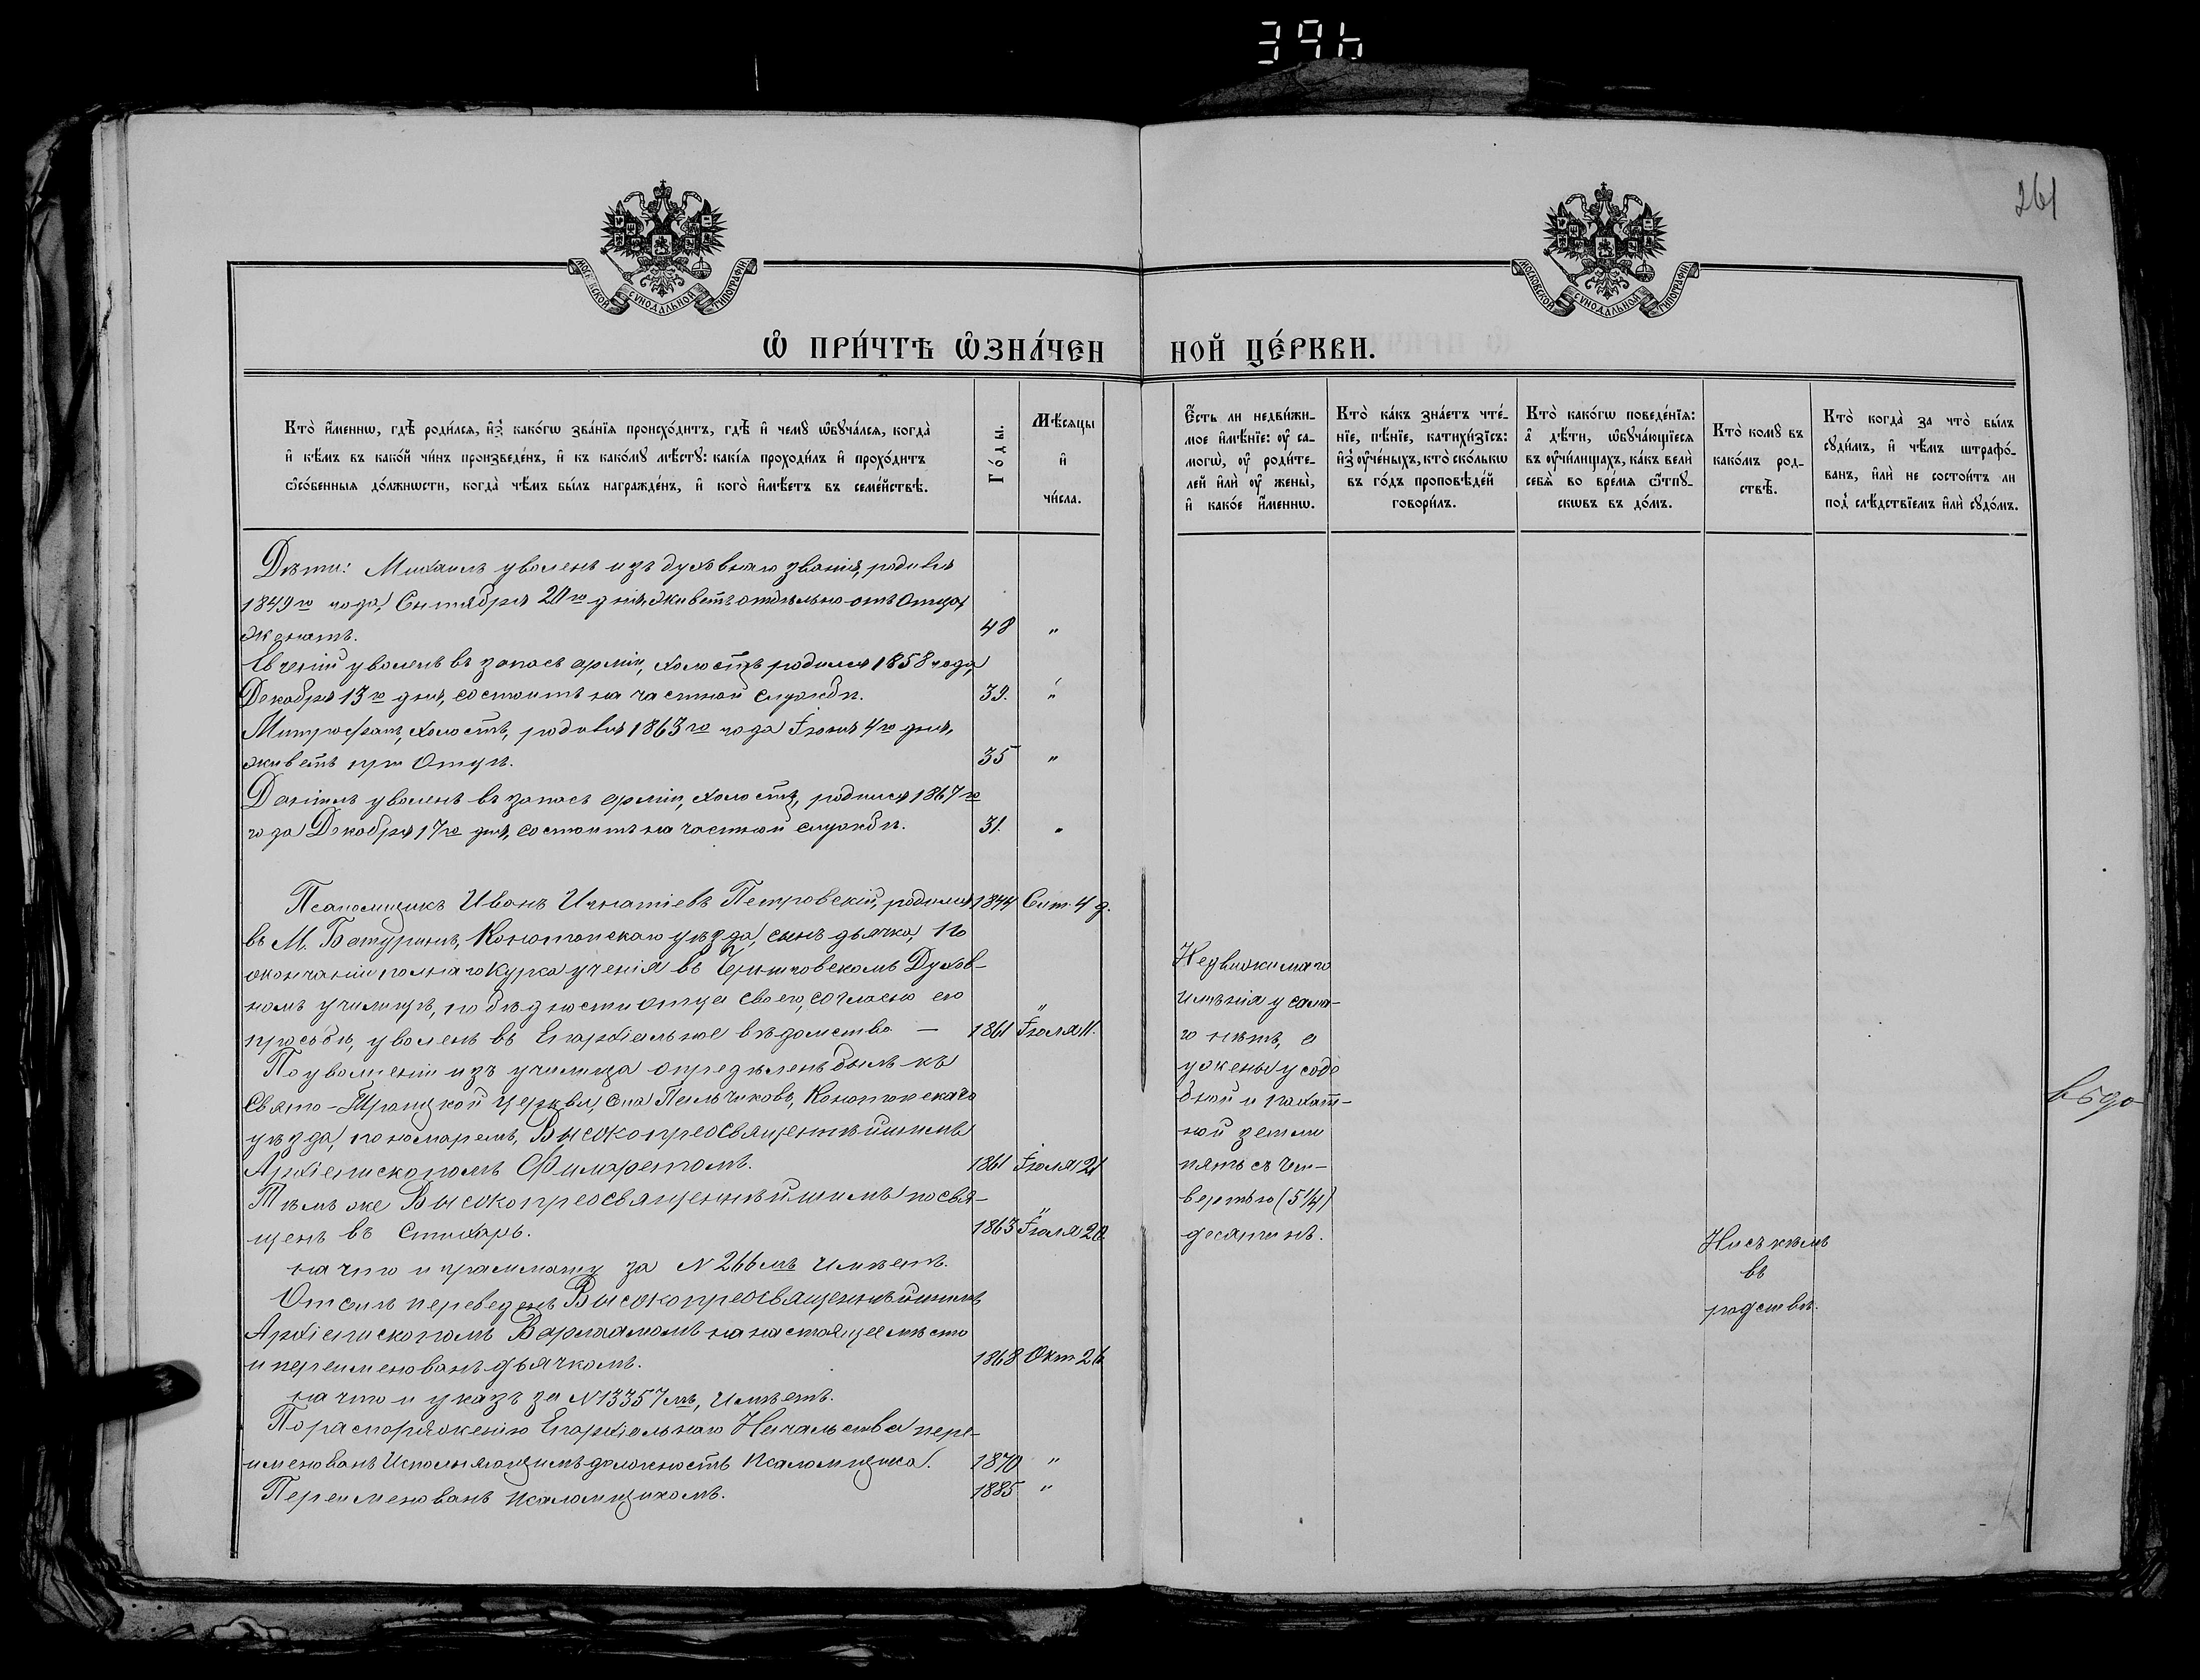 396
261
МОСКОВСКОЙ СѴНОДАЛЬНОЙ ТИПОГРАФІИ
МОСКОВСКОЙ СѴНОДАЛЬНОЙ ТИПОГРАФІИ
Ѡ ПРИ́ЧТѢ ѠЗНА́ЧЕН НОЙ ЦЕ́РКВИ.
Кто̀ и҆́меннѡ, гдѣ̀ роди́лсѧ, и҆з̾ како́гѡ зва́нїѧ происхо́дитъ, гдѣ̀ и҆ чемꙋ̀ ѡ҆бꙋча́лсѧ, когда̀
и҆ кѣ́мъ въ како́й чи́нъ произведе́нъ, и҆ къ како́мꙋ мѣ́стꙋ: какі́ѧ проходи́лъ и҆ прохо́дитъ
ѻ҆со́бенныѧ до́лжнѡсти, когда̀ чѣ́мъ бы́лъ награжде́нъ, и҆ кого̀ и҆мѣ́етъ въ семе́йствѣ.
Го́ды.
Мѣ́сѧцы
и҆
чи́сла.
Є҆́сть ли недви́жи-
мое и҆мѣ́нїе: оу҆ са-
могѡ̀, оу҆ роди́те-
лей и҆лѝ оу҆ жены̀,
и҆ како́е и҆́меннѡ.
Кто̀ ка́къ зна́етъ чте́-
нїе, пѣ́нїе, катихи́зїсъ:
и҆з̾ оу҆че́ныхъ, кто̀ ско́лькѡ
въ го́дъ проповѣ́дей
говори́лъ.
Кто̀ како́гѡ поведе́нїѧ:
а҆ дѣ́ти, ѡ҆бꙋча́ющїесѧ
въ оу҆чи́лищахъ, ка́къ велѝ
себѧ̀ во вре́мѧ ѿпꙋ-
скѡвъ въ до́мъ.
Кто̀ комꙋ̀ въ
како́мъ род-
ствѣ̀.
Кто̀ когда̀ за что̀ бы́лъ
сꙋди́мъ, и҆ чѣ́мъ штрафо́-
ванъ, и҆лѝ не состои́тъ ли
под̾ слѣ́дствїемъ и҆лѝ сꙋдо́мъ.
Дѣти: Михаилъ уволенъ изъ духовнаго званія, родился
1849го года, Сентября 20го дня, живетъ отдѣльно отъ Отца,
женатъ. 48 "
Евгеній уволенъ въ запасъ арміи, холостъ, родился 1858 года,
Декабря 13го дня, состоитъ на частной службѣ. 39. "
Митрофанъ, холостъ, родился 1863го года Іюня 4го дня,
живетъ при Отцѣ. 35 "
Даніилъ уволенъ въ запасъ арміи, холостъ, родился 1867го
года Декабря 17го дня, состоитъ на частной службѣ. 31. "
Псаломщикъ Иванъ Игнатіевъ Петровскій, родился 1844 Сент. 4 д.
въ М. Батуринѣ, Конотопскаго уѣзда, сынъ дьячка, по
окончаніи полнаго курса ученія въ Черниговскомъ Духов-
номъ училищѣ, по бѣдности отца своего, согласно его
прозьбѣ, уволенъ въ Епархіальное вѣдомство — 1861 Іюля 11.
По уволненіи изъ училища опредѣленъ былъ къ
Свято-Троицкой церкви, села Пальчиковъ, Конотопскаго
уѣзда, пономаремъ, Высокопреосвященнѣйшимъ
Архіепископомъ Филаретомъ. 1861 Іюля 21
Тѣмъ же Высокопреосвященнѣйшимъ посвя-
щенъ въ Стихарь. 1863 Іюля 20
на что и граммату за N 266мъ имѣетъ.
Отсель переведенъ Высокопреосвященнѣйшимъ
Архіепископомъ Варлаамомъ на настоящее мѣсто
и переименованъ дьячкомъ. 1868 Окт 26
на что и указъ за N 13357мъ, имѣетъ.
По распоряженію Епархіальнаго Начальства пере-
именованъ Исполняющимъ должность Псаломщика. 1870 "
Переименованъ псаломщикомъ. 1885 "
Недвижимаго
имѣнія у сама-
го нѣтъ, а
у жены усаде
бной и пахат-
ной земли
пять съ чет-
вертью (5 1/4)
десятинъ.
Ни съ кѣмъ
въ
родствѣ.